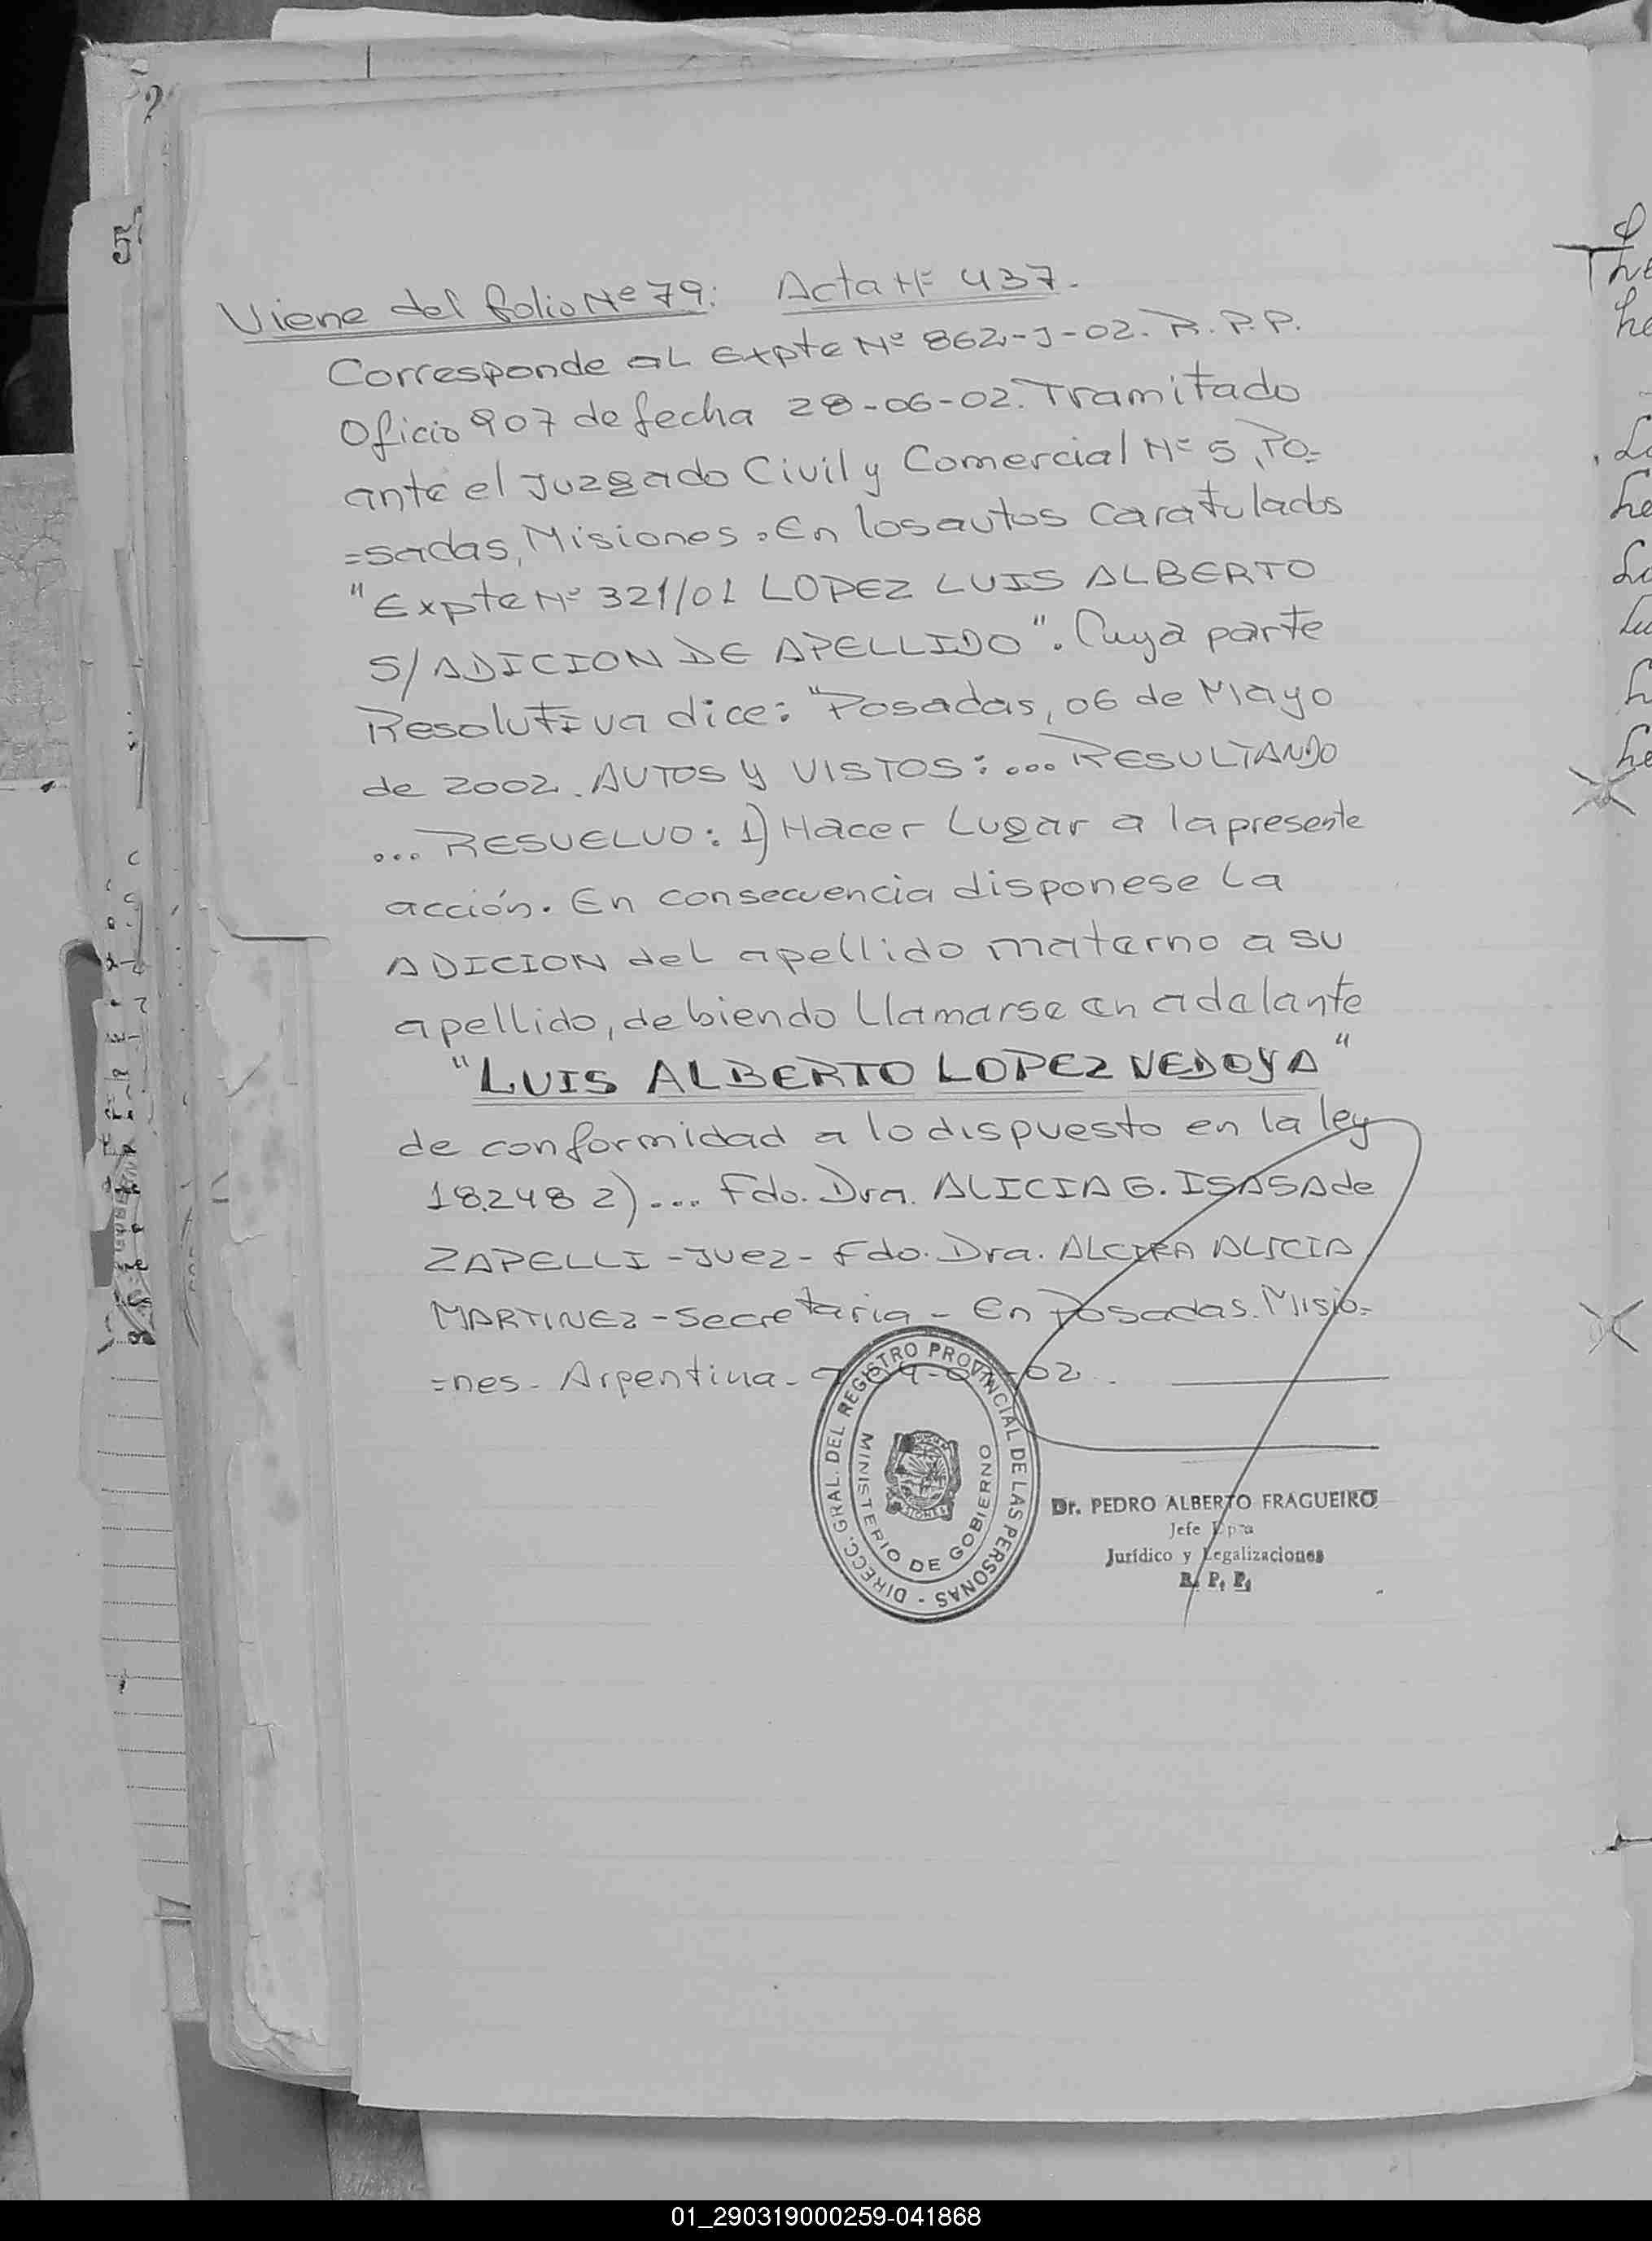 Viene del folio Nº 79: Acta Nº 437.
Corresponde al Expte Nº 862-J-02. R.P.P.
Oficio 907 de fecha 28-06-02. Tramitado
ante el Juzgado Civil y Comercial Nº 5, Po=
=sadas, Misiones. En los autos caratulados
"Expte Nº 321/01 LOPEZ LUIS ALBERTO
S/ ADICION DE APELLIDO". Cuya parte
Resolutiva dice: "Posadas, 06 de Mayo
de 2002. AUTOS Y VISTOS: ... RESULTANDO
... RESUELVO: 1) Hacer Lugar a la presente
acción. En consecuencia disponese La
ADICION del apellido materno a su
apellido, debiendo Llamarse en adelante
"LUIS ALBERTO LOPEZ VEDOYA"
de conformidad a lo dispuesto en la ley
18.248 2) ... Fdo. Dra. ALICIA G. ISASA de
ZAPELLI - Juez - Fdo. Dra. ALCIRA ALICIA
MARTINEZ - Secretaria - En Posadas. Misio=
=nes - Argentina -
DIRECC. GRAL. DEL REGISTRO PROVINCIAL DE LAS PERSONAS -
MINISTERIO DE GOBIERNO
Dr. PEDRO ALBERTO FRAGUEIRO
Jefe Dpto
Jurídico y Legalizaciones
R. P. P.
01_290319000259-041868